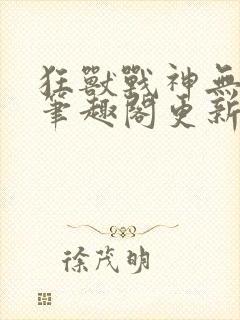 狂獸戰神無
筆趣閣更新
徐茂明